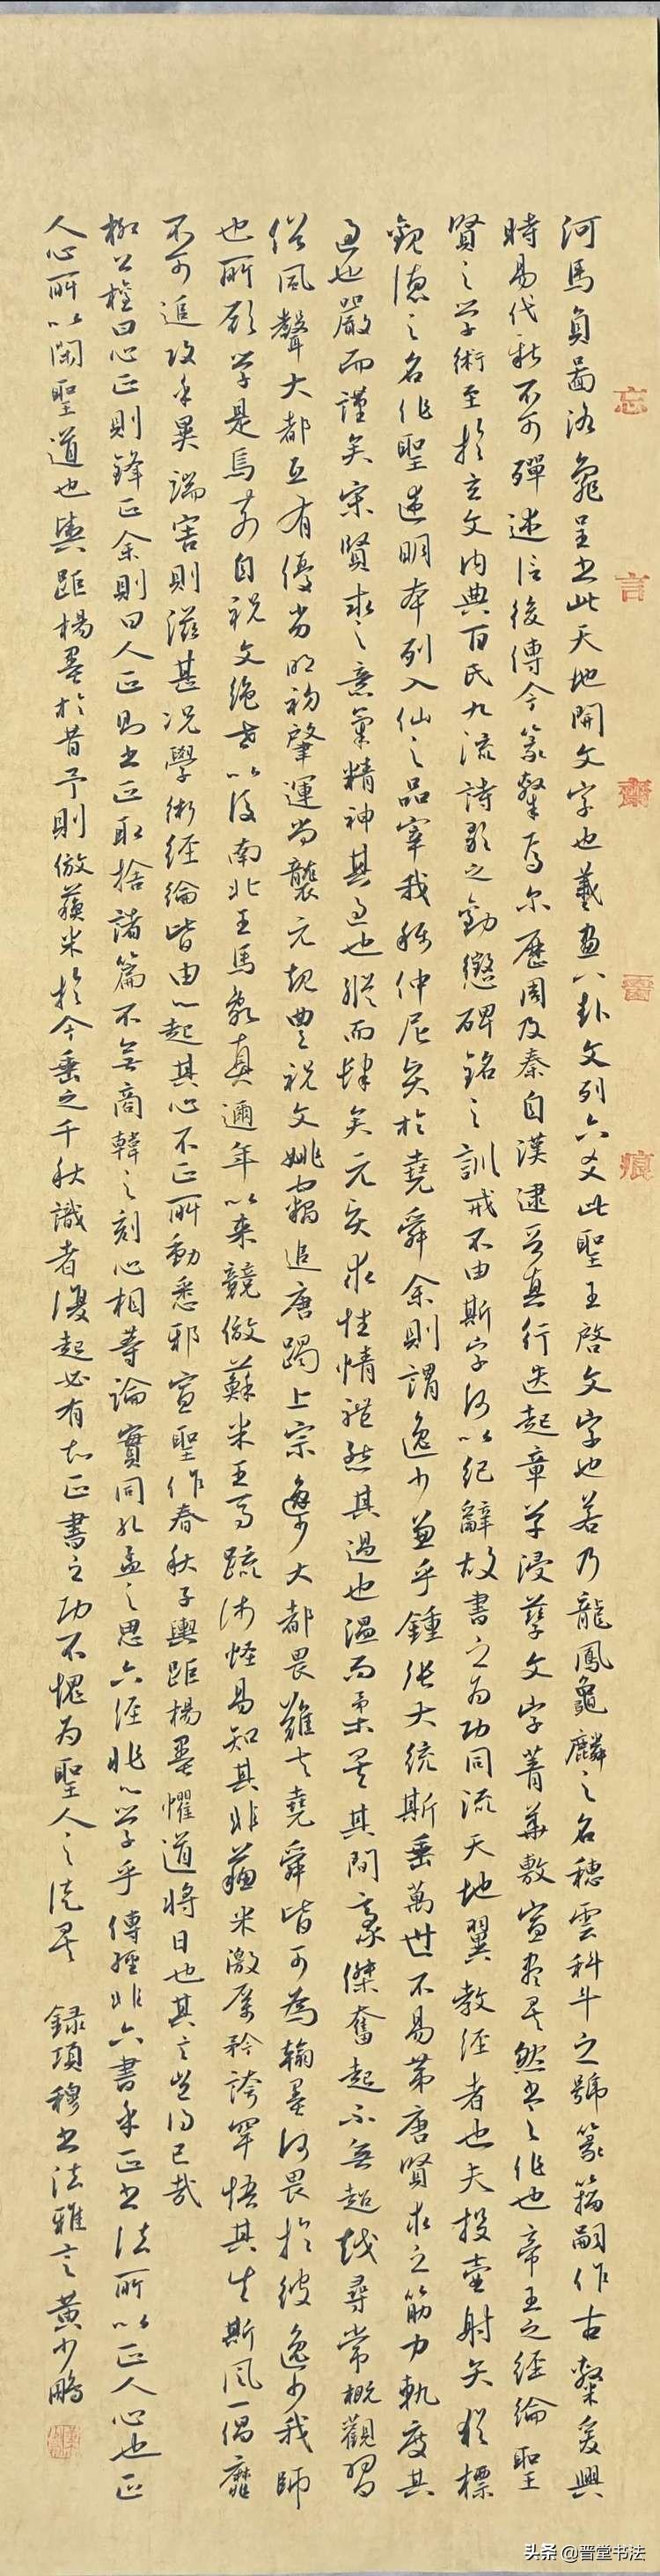 忘言齋痕
河馬負圖洛龜呈書此天地開文字也羲畫八卦文列六爻此聖王啓文字也若乃龍鳳龜麟之名穗雲科斗之號篆籀嗣作古隸爰興
時易代新不可殫述信後傳今篆隸焉尔歷周及秦自漢逮晉真行迭起章草浸孳文字菁華敷宣盡矣然書之作也帝王之經綸聖
賢之學術至於玄文內典百氏九流詩歌之勸懲碑銘之訓戒不由斯字何以紀辭故書之為功同流天地翼教經者也夫投壺射矢猶標
觀德之名作聖述明本列入仙之品宰我稱仲尼賢於堯舜余則謂逸少兼乎鍾張大統斯垂萬世不易第唐賢求之筋力軌度其
過也嚴而謹矣宋賢求之意氣精神其過也縱而肆矣元賢求性情體態其過也溫而柔矣其間豪傑奮起不無超越尋常概觀習
俗風聲大都互有優劣明初肇運尚襲元規豐祝文姚竊追唐躅上宗逸少大都畏難夫堯舜皆可為翰墨何畏於彼逸少我師
也所願學是焉奈自祝文絕世以後南北王馬亂真邇年以來競倣蘇米王馬疏淺怪易知其非蘇米激厲矜誇罕悟其失斯風一偶靡
不可追攻乎異端害則滋甚況學術經綸皆由心起其心不正所動悉邪宣聖作春秋子輿距楊墨懼道將日也其言豈得已哉
柳公權曰心正則鋒正余則曰人正則書正取捨諸篇不無商韓之刻心相等論實同孔孟之思六經非心學乎傳經非六書乎正書法所以正人心也正
人心所以閑聖道也輿距楊墨於昔予則倣蘇米於今垂之千秋識者復起必有知正書之功不愧為聖人之徒矣 錄項穆書法雅言 黃少鵬
头条 @晋堂书法